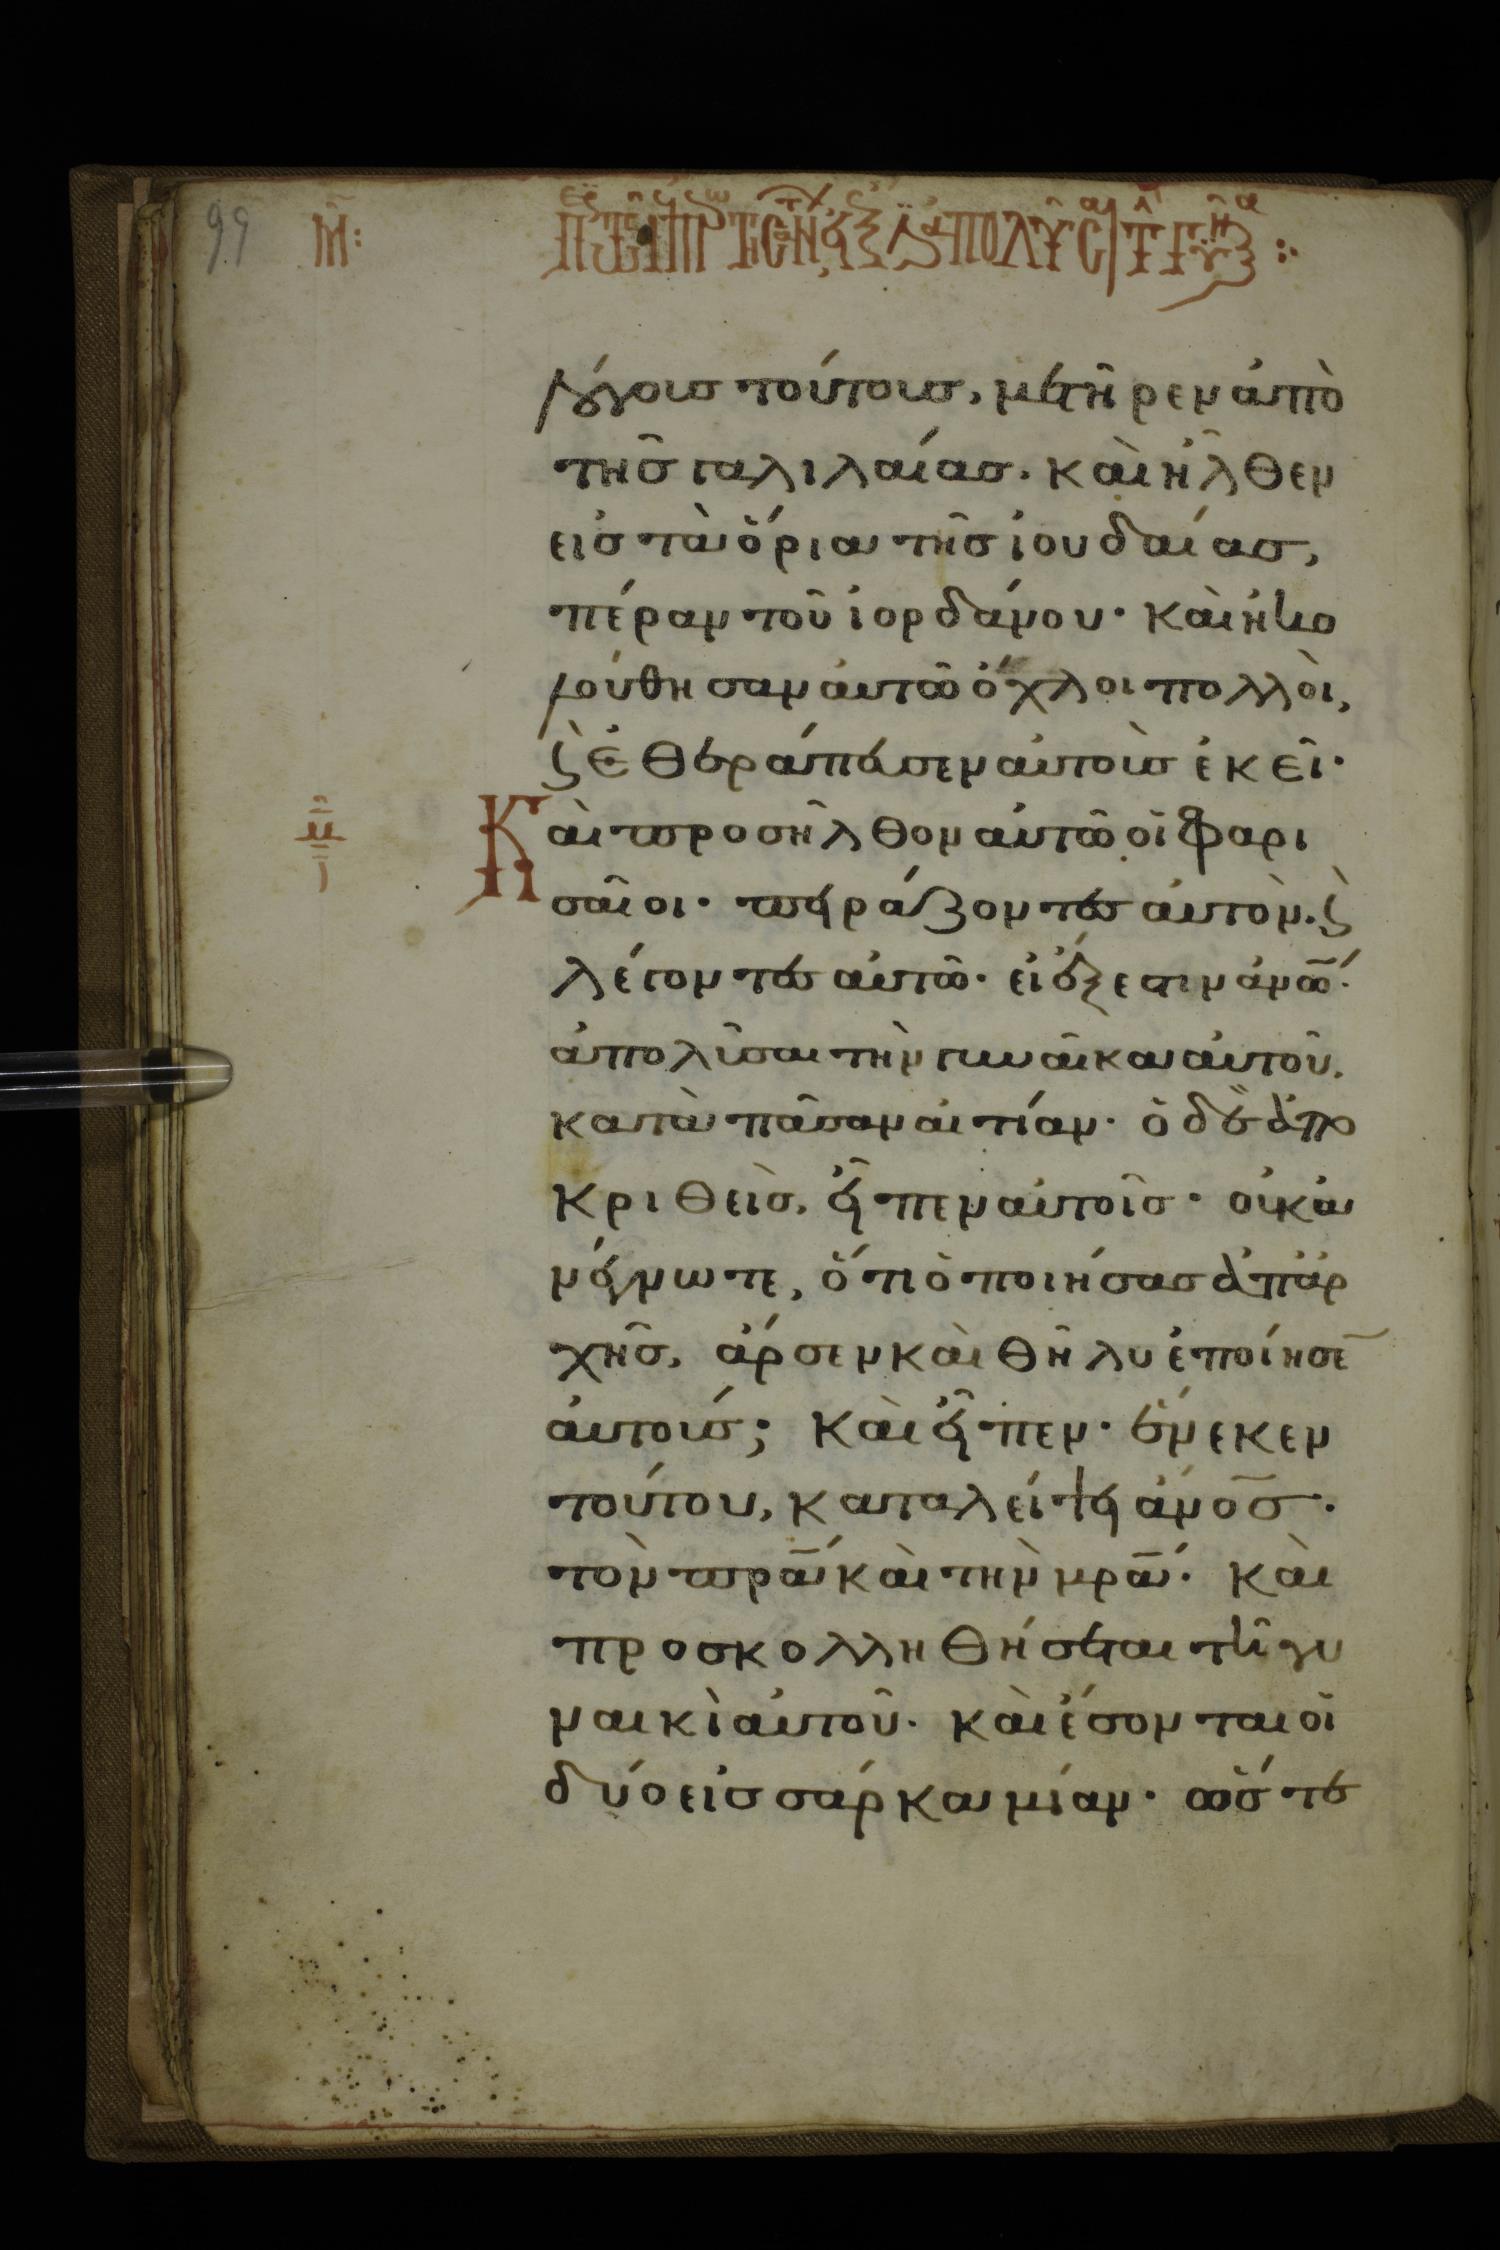 99
Μ:
λόγους τούτους, μετῆρεν ἀπὸ
τῆς γαλιλαίας. καὶ ἦλθεν
εἰς τὰ ὅρια τῆς ἰουδαίας,
πέραν τοῦ ἰορδάνου· καὶ ἠκο
λούθησαν αὐτῶ ὄχλοι πολλοὶ,
ϗ ἐθεράπευσεν αὐτοὺς ἐκεῖ·
Καὶ προσῆλθον αὐτῶ οἱ φαρι
σαῖοι· πειράζοντες αὐτὸν. ϗ
λέγοντες αὐτῶ· εἰ ἔξεστιν ἀνω̅·
ἀπολῦσαι τὴν γυναῖκα αὐτοῦ.
κατὰ πᾶσαν αἰτίαν· ὁ δὲ ἀπο
κριθεὶς, εἶπεν αὐτοῖς· οὐκ ἀ
νέγνωτε, ὅτι ὁ ποιήσας ἀπ' ἀρ
χῆς, ἄρσεν καὶ θῆλυ ἐποίησε̅
αὐτούς; καὶ εἶπεν· ἕνεκεν
τούτου, καταλείψει ἄνο̅ς·
τὸν πρ̅α καὶ τὴν μρ̅α· καὶ
προσκολληθήσεται τῆ γυ
ναικὶ αὐτοῦ· καὶ ἔσονται οἱ
δύο εἰς σάρκα μίαν· ὥστε